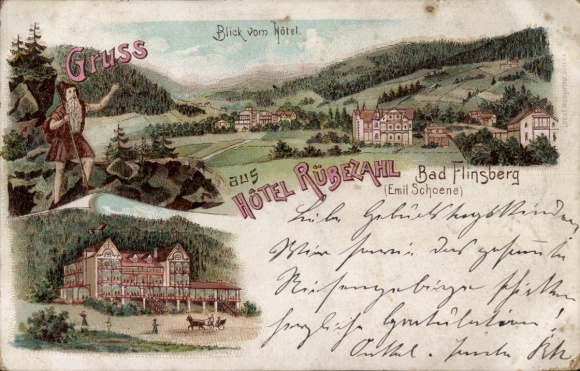 Gruss
Blick vom Hôtel.
aus
HÔTEL RÜBEZAHL
Bad Flinsberg
(Emil Schoene)
Liebe Geburtstagskinder
Wir sowie das gesammte
Riesengebirge schicken
herzliche Gratulation!
Onkel.